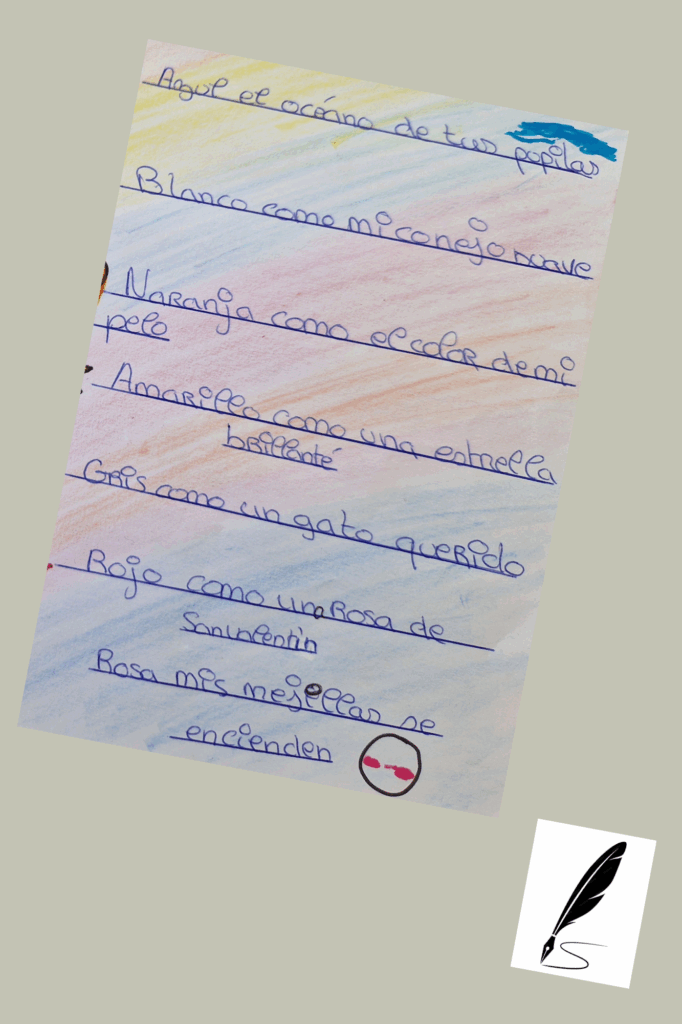 Azul el océano de tus pupilas
Blanco como mi conejo suave
Naranja como el color de mi
pelo
Amarillo como una estrella
brillante
Gris como un gato querido
Rojo como una Rosa de
San valentín
Rosa mis mejillas se
encienden